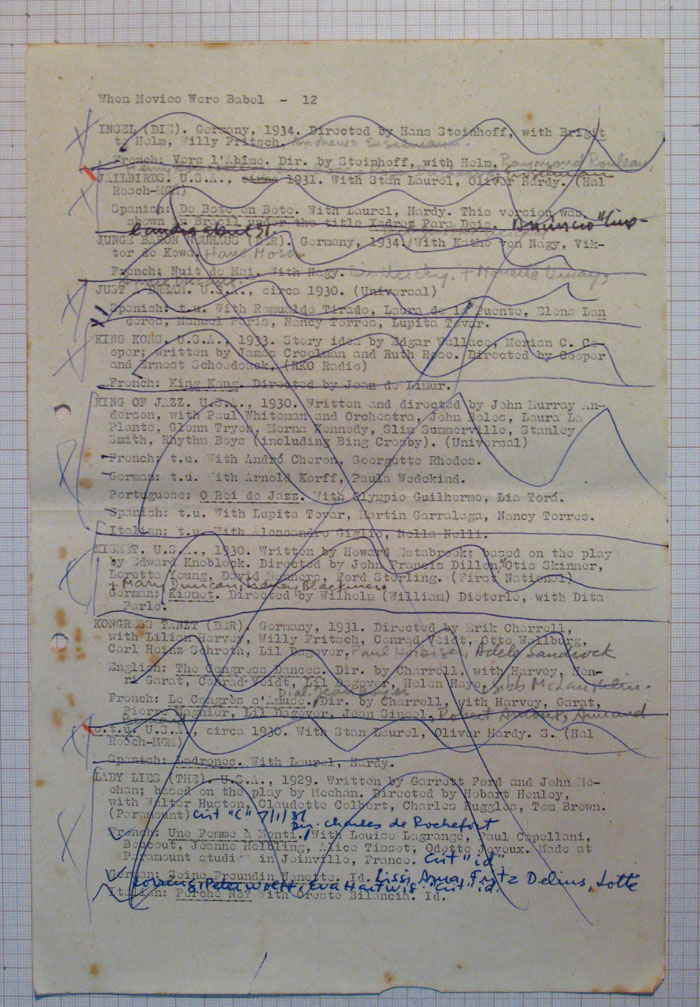 When Movies Were Babel - 12
INSEL (DIE). Germany, 1934. Directed by Hans Steinhoff, with Brigit
te Helm, Willy Fritsch.
French: Vers l'Abîme. Dir. by Steinhoff, with Helm, Raymond Rouleau,
JAILBIRDS. U.S.A., circa 1931. With Stan Laurel, Oliver Hardy. (Hal
Roach-MGM)
Spanish: De Bote en Bote. With Laurel, Hardy. This version was
shown in Brazil under the title Xadrez Para Dois.
JUNGE BARON NEUHAUS (DER). Germany, 1934. With Käthe von Nagy, Vik-
tor de Kowa, Hans Moser
French: Nuit de Mai. With Nagy.
JUST A DREAM. U.S.A., circa 1930. (Universal)
Spanish: t.u. With Romualdo Tirado, Laura de la Puente, Elena Lan
deros, Manuel Paris, Nancy Torres, Lupita Tovar.
KING KONG. U.S.A., 1933. Story idea by Edgar Wallace, Merian C. Co-
oper; written by James Creelman and Ruth Rose. Directed by Cooper
and Ernest Schoedsack. (RKO Radio)
French: King Kong. Directed by Jean de Limur.
KING OF JAZZ. U.S.A., 1930. Written and directed by John Murray An-
derson, with Paul Whiteman and Orchestra, John Boles, Laura La
Plante, Glenn Tryon, Merna Kennedy, Slim Summerville, Stanley
Smith, Rhythm Boys (including Bing Crosby). (Universal)
French: t.u. With André Cheron, Georgette Rhodes.
German: t.u. With Arnold Korff, Paula Wedekind.
Portuguese: O Rei do Jazz. With Olympio Guilherme, Lia Torá.
Spanish: t.u. With Lupita Tovar, Martin Garralaga, Nancy Torres.
Italian: t.u. With Alessandro Giglio, Nella Nelli.
KISMET. U.S.A., 1930. Written by Howard Estabrook; based on the play
by Edward Knoblock. Directed by John Francis Dillon, Otis Skinner,
Loretta Young, David Manners, Ford Sterling. (First National)
+ Mary Duncan,
German: Kismet. Directed by Wilhelm (William) Dieterle, with Dita
Parlo.
KONGRESS TANZT (DER). Germany, 1931. Directed by Erik Charrell,
with Lilian Harvey, Willy Fritsch, Conrad Veidt, Otto Wallburg,
Carl Heinz Schroth, Lil Dagover, Paul Hörbiger, Adele Sandrock
English: The Congress Dances. Dir. by Charrell, with Harvey, Hen-
ri Garat, Conrad Veidt, Lil Dagover, Helen Haye,
French: Le Congrès s'Amuse. Dir. by Charrell, with Harvey, Garat,
Pierre Magnier, Lil Dagover, Jean Sinoel, Robert Arnoux, Armand
U.S.A., circa 1930. With Stan Laurel, Oliver Hardy. S. (Hal
Roach-MGM)
Spanish: Ladrones. With Laurel, Hardy.
LADY LIES (THE). U.S.A., 1929. Written by Garrett Ford and John Me-
ehan; based on the play by Meehan. Directed by Hobart Henley,
with Walter Huston, Claudette Colbert, Charles Ruggles, Tom Brown.
(Paramount) Cut "C" 7/1/31
Dir. Charles de Rochefort
French: Une Femme a Menti. With Louise Lagrange, Paul Capellani,
Boucout, Jeanne Helbling, Alice Tissot, Odette Joyeux. Made at
Paramount studio in Joinville, France. Cut "id"
German: Seine Freundin Nanette. Id. Lissi Arna, Fritz Delius, Lotte
Lorring, Peter Wolff, Eva Hartwig Cut "id.
Italian: Perché No? With Oreste Bilancia. Id.